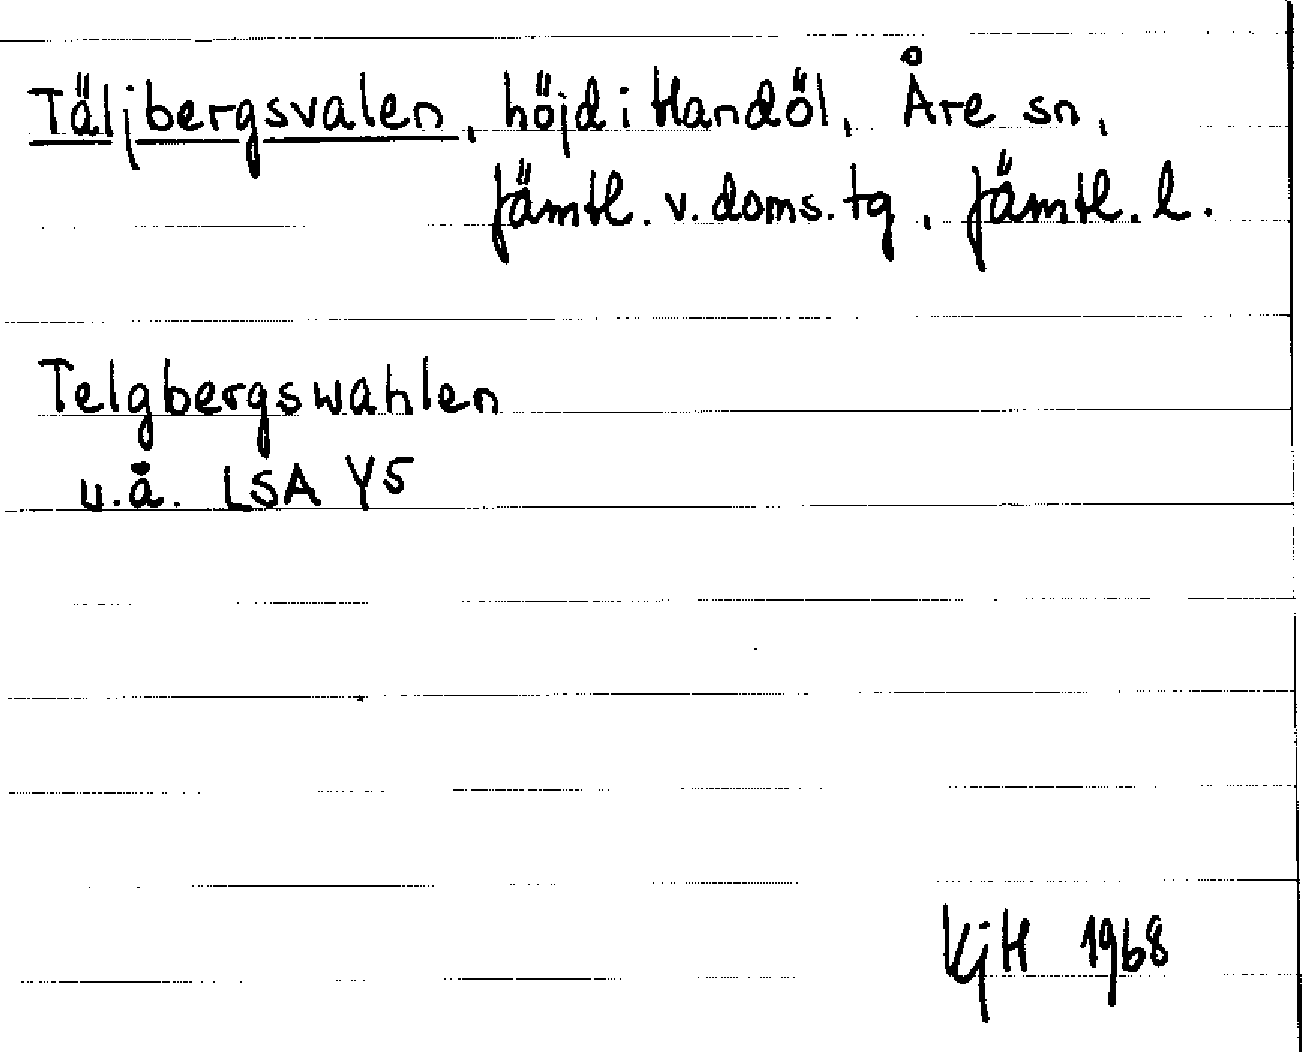 Täljbergsvalen, höjd i Handöl, Åre sn,
Jämtl. v. doms. tg, Jämtl. l.
Telgbergswahlen
u.å. LSA Y5
KjH 1968